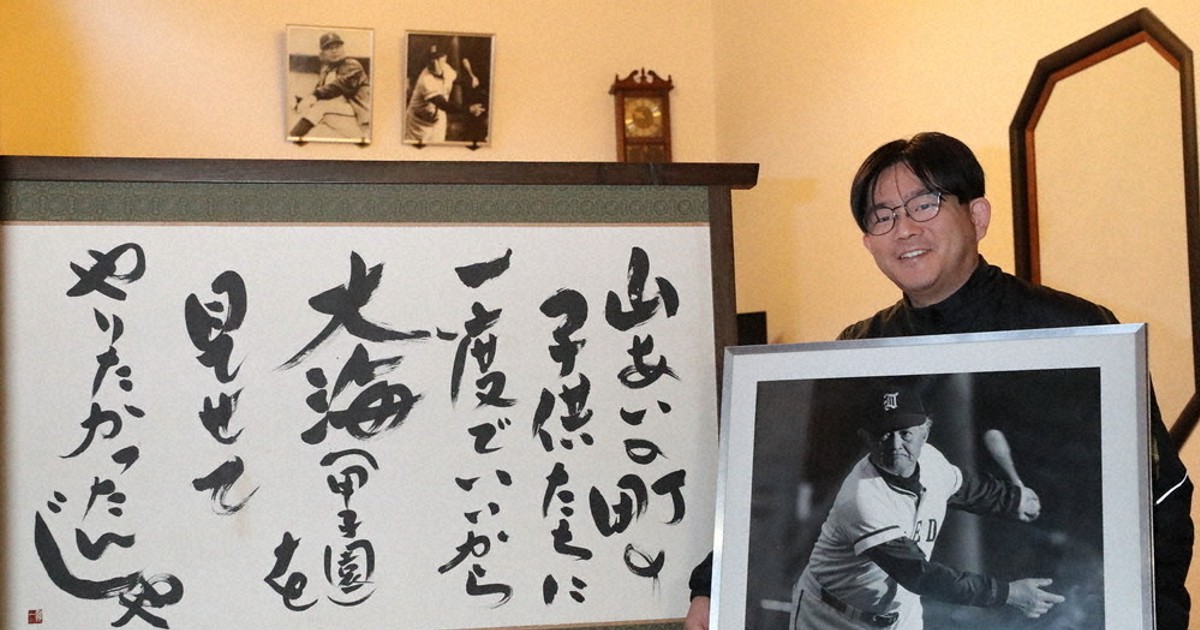 山あいの町の
子供たちに
一度でいいから
大海(甲子園)を
見せて
やりたかったんじゃ
ED